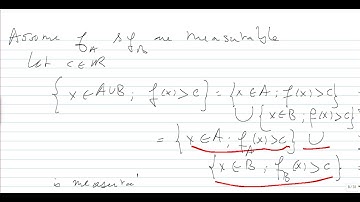 Assume f_A & f_B are measurable
Let c ∈ ℝ
{ x ∈ A∪B ; f(x) > c } = { x ∈ A ; f(x) > c }
∪ { x ∈ B ; f(x) > c }
= { x ∈ A ; f_A(x) > c } ∪
{ x ∈ B ; f_B(x) > c }
is